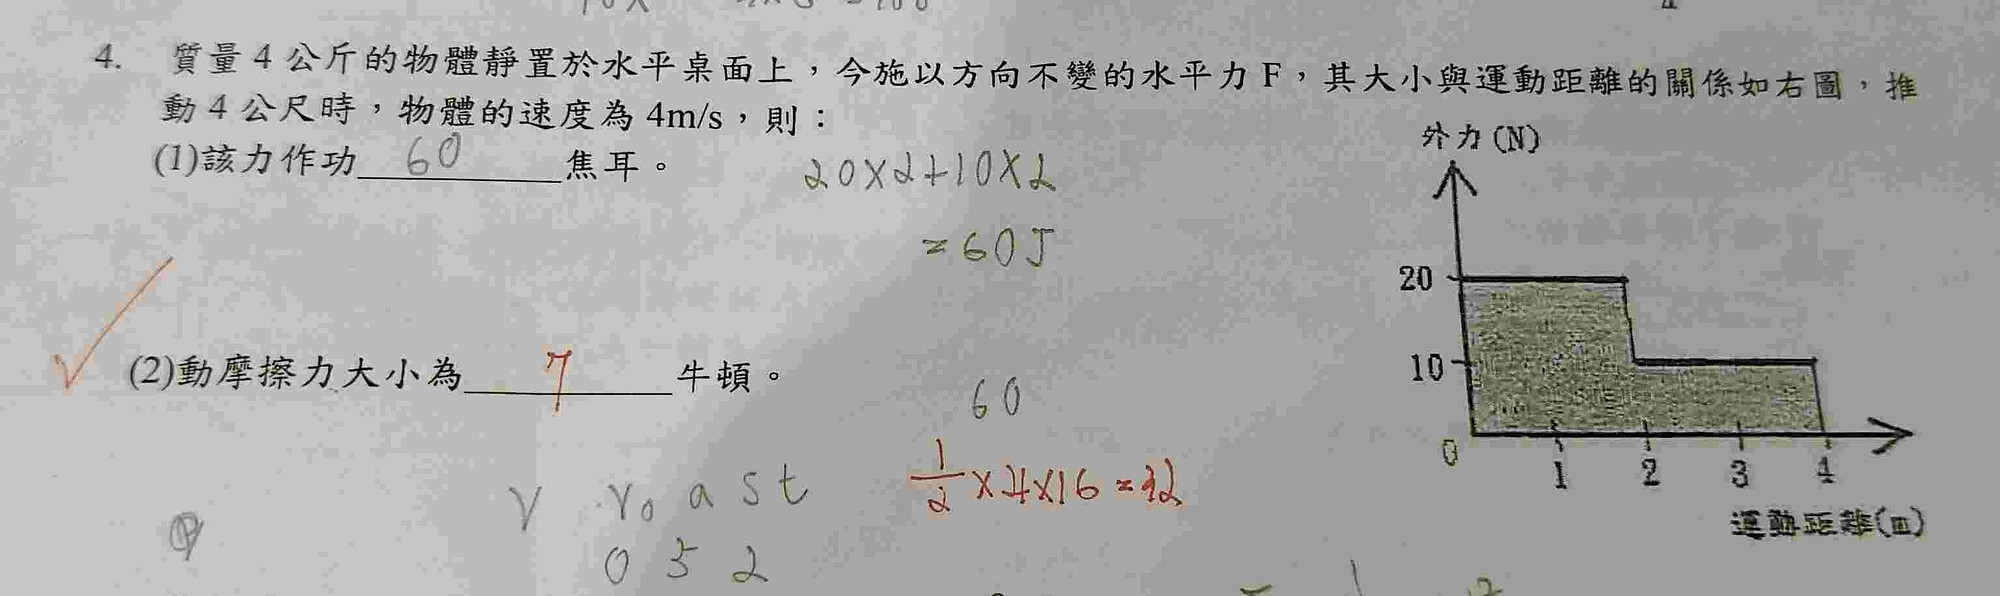 4. 質量 4 公斤的物體靜置於水平桌面上，今施以方向不變的水平力 F，其大小與運動距離的關係如右圖，推
動 4 公尺時，物體的速度為 4m/s，則：
(1)該力作功 60 焦耳。
20×2+10×2
=60J
(2)動摩擦力大小為 7 牛頓。
60
1/2×4×16=32
V V₀ a S t
0 5 2
外力(N)
20
10
0 1 2 3 4
運動距離(m)